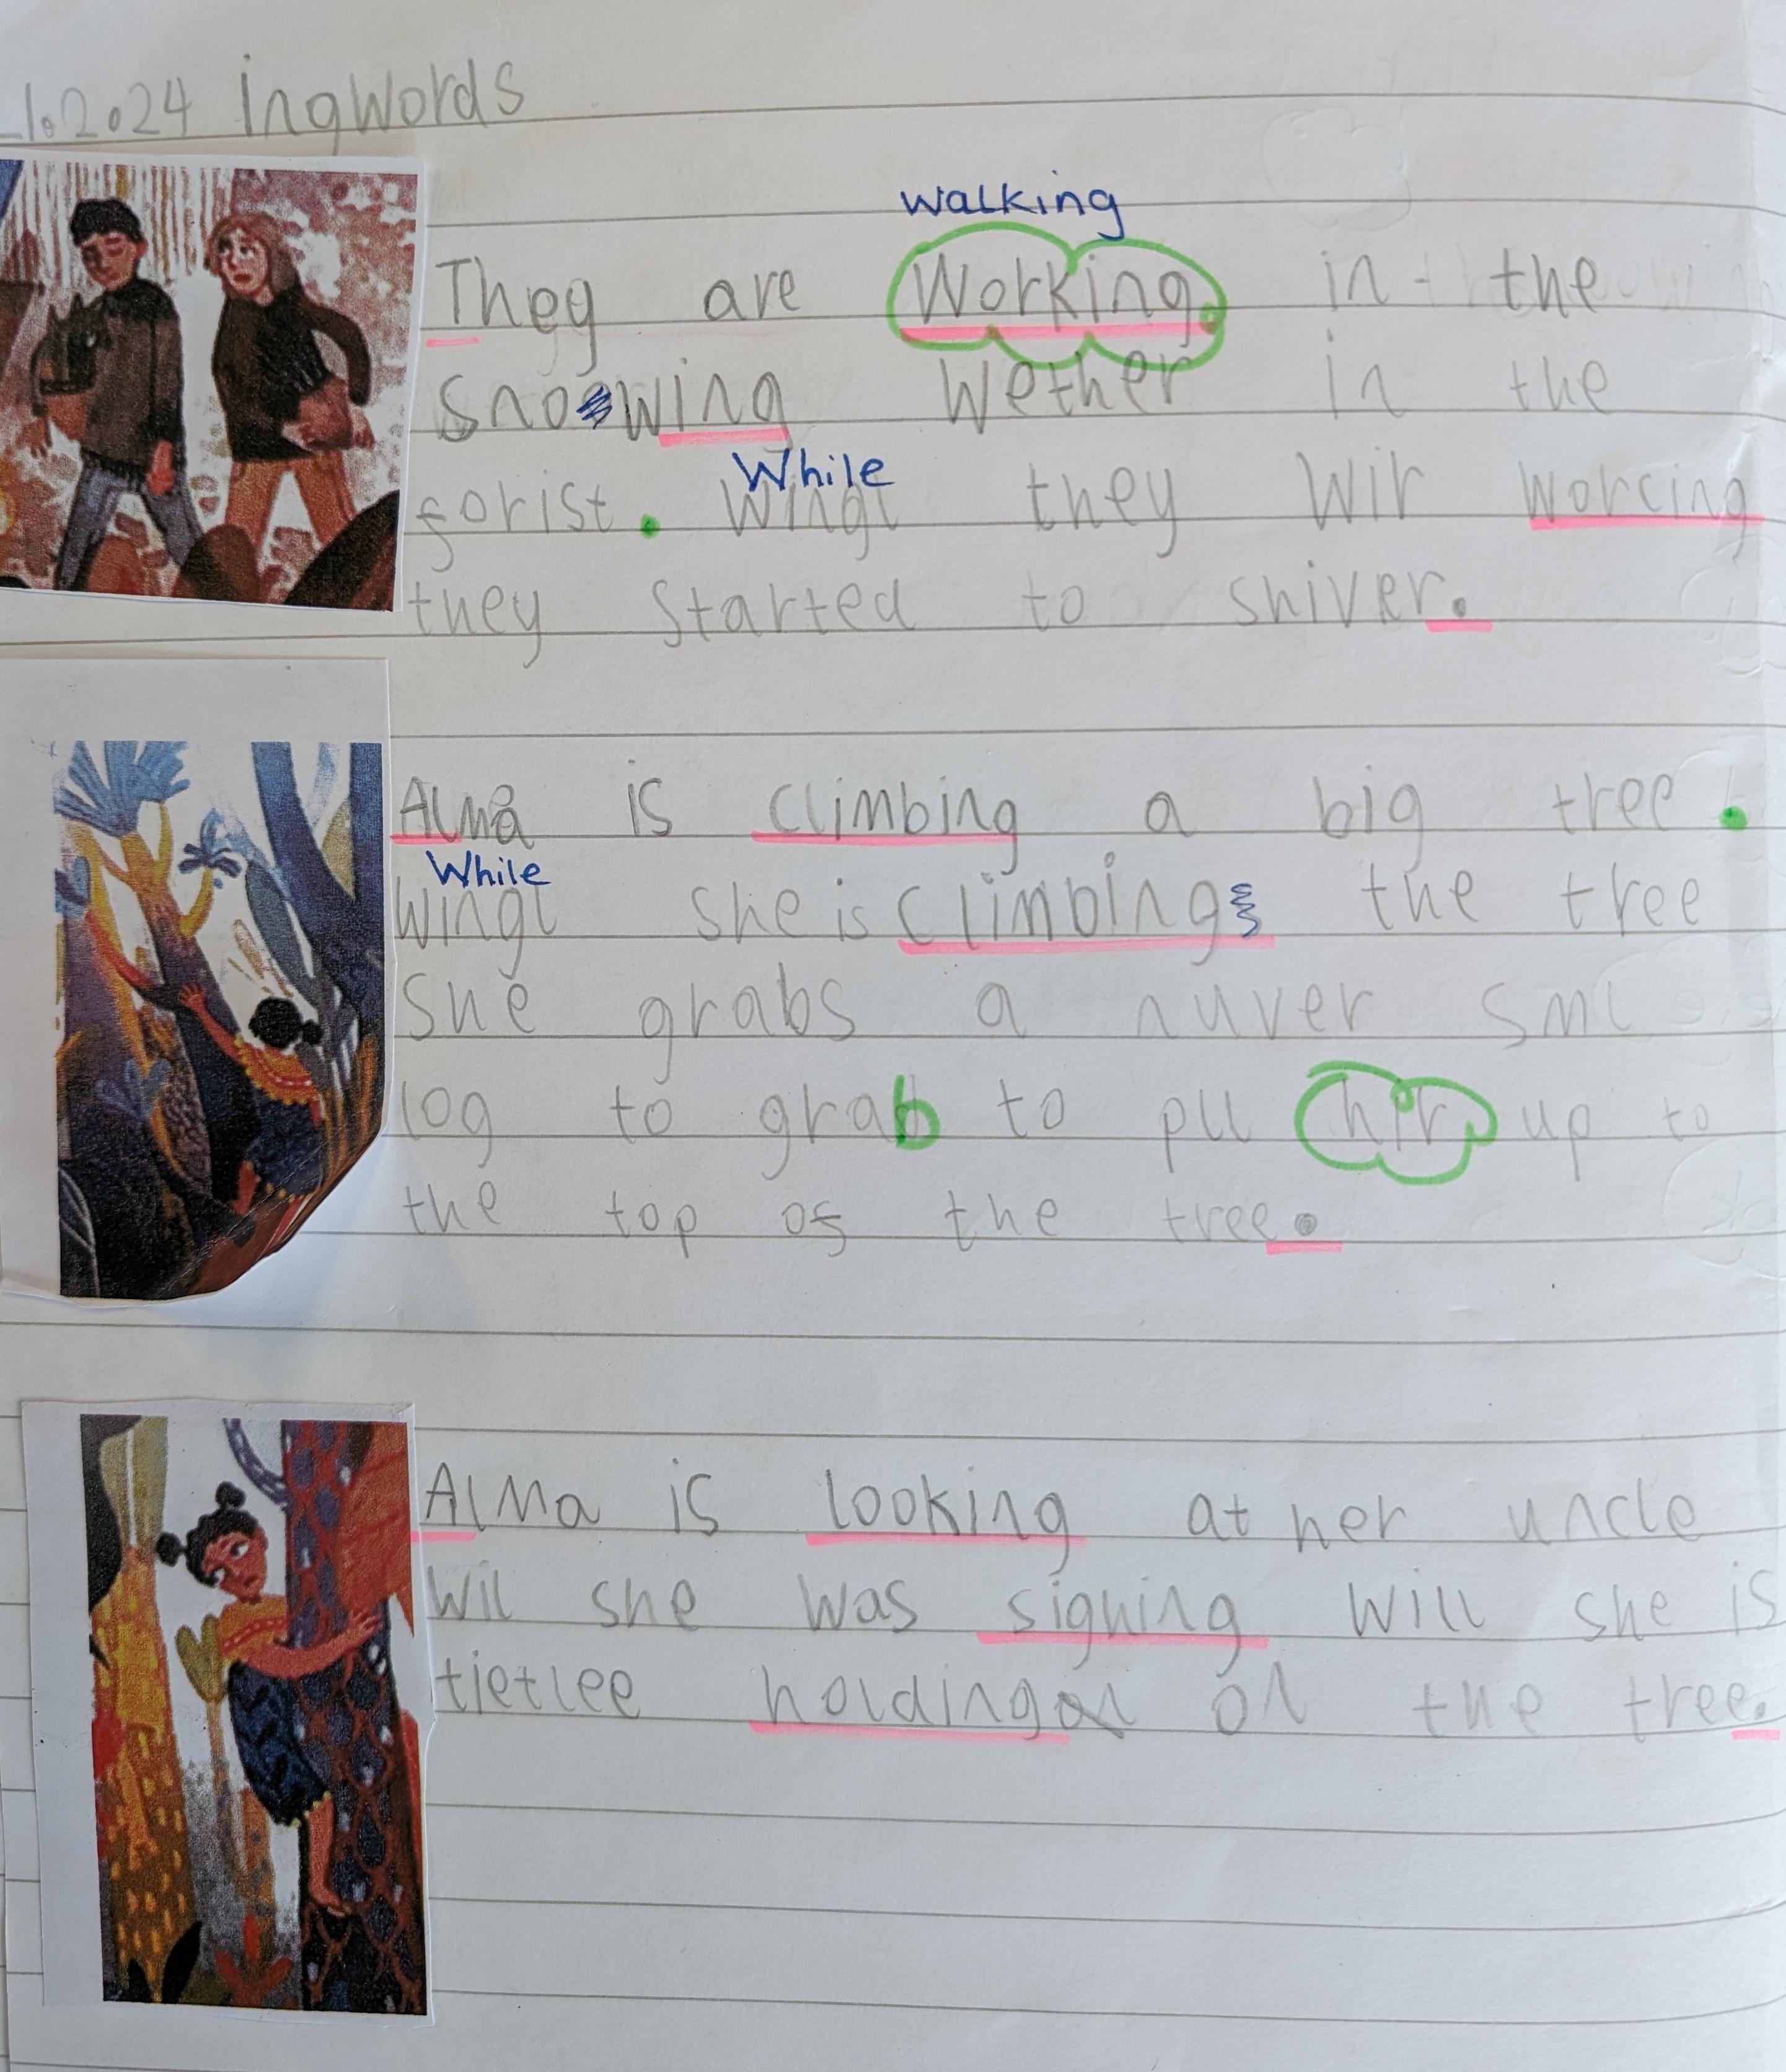 1.2.024 ingwords
walking
They are Working. in the
snowing Wether in the
While
forist. Wingl they Wir Worcing
they started to shiver.
Alma is climbing a big tree.
While
Wingl she is climbing the tree
she grabs a nuver sml
log to grab to pll hir up to
the top of the tree.
Alma is looking at her uncle
Wil she was sighing Will she is
tietlee holding on the tree.